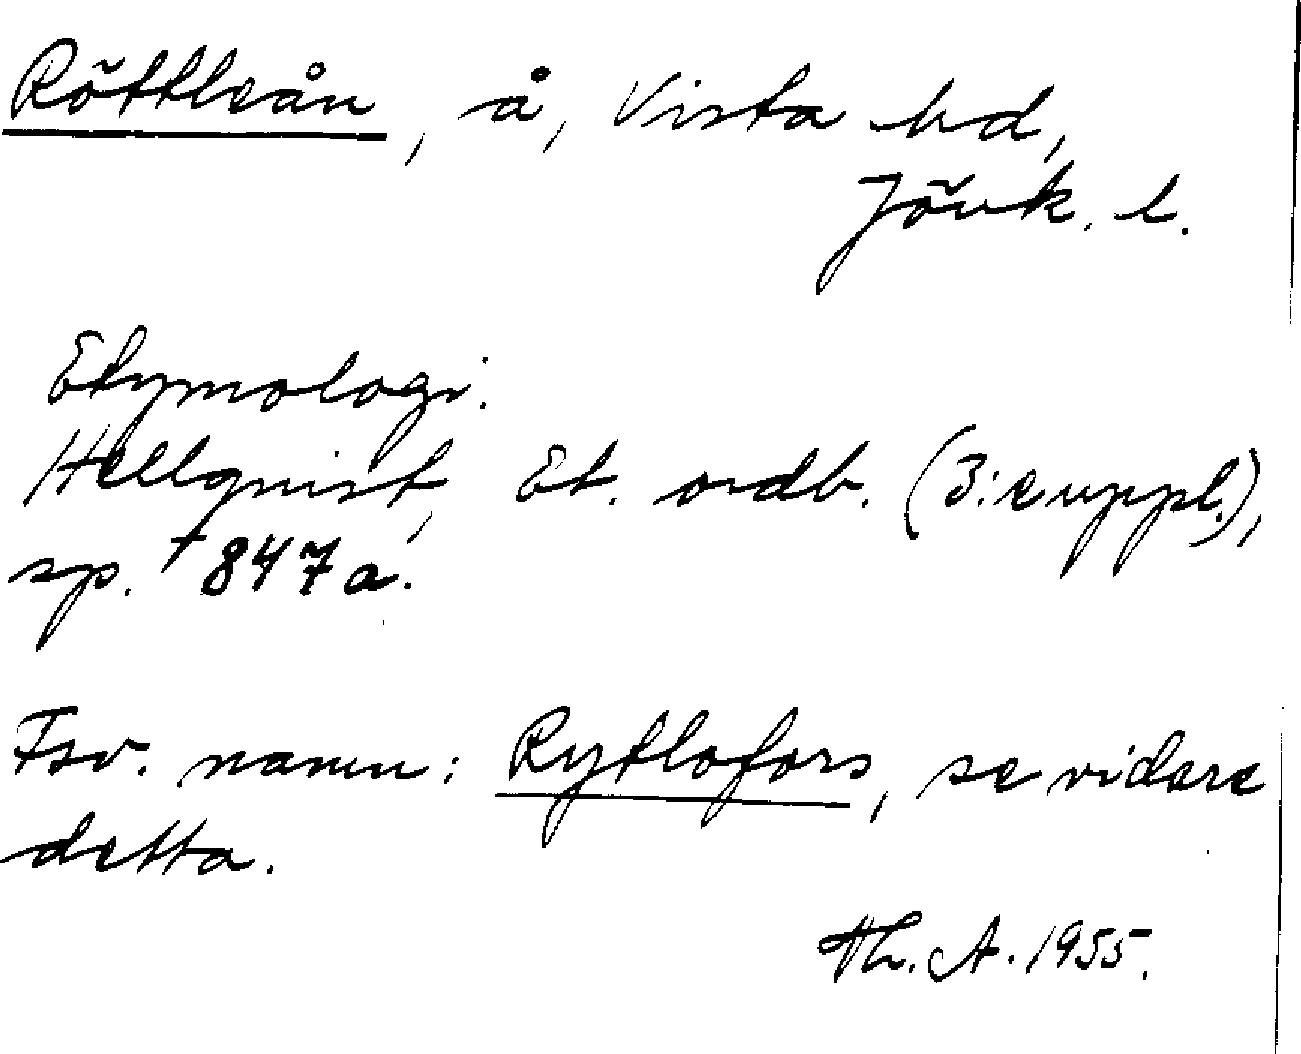 Röttleån, å, Vista hd,
Jönk. l.
Etymologi:
Hellquist, Et. ordb. (3:e uppl.),
sp. † 847 a.
Fsv. namn: Rytlofors, se vidare
detta.
Th. A. 1955.